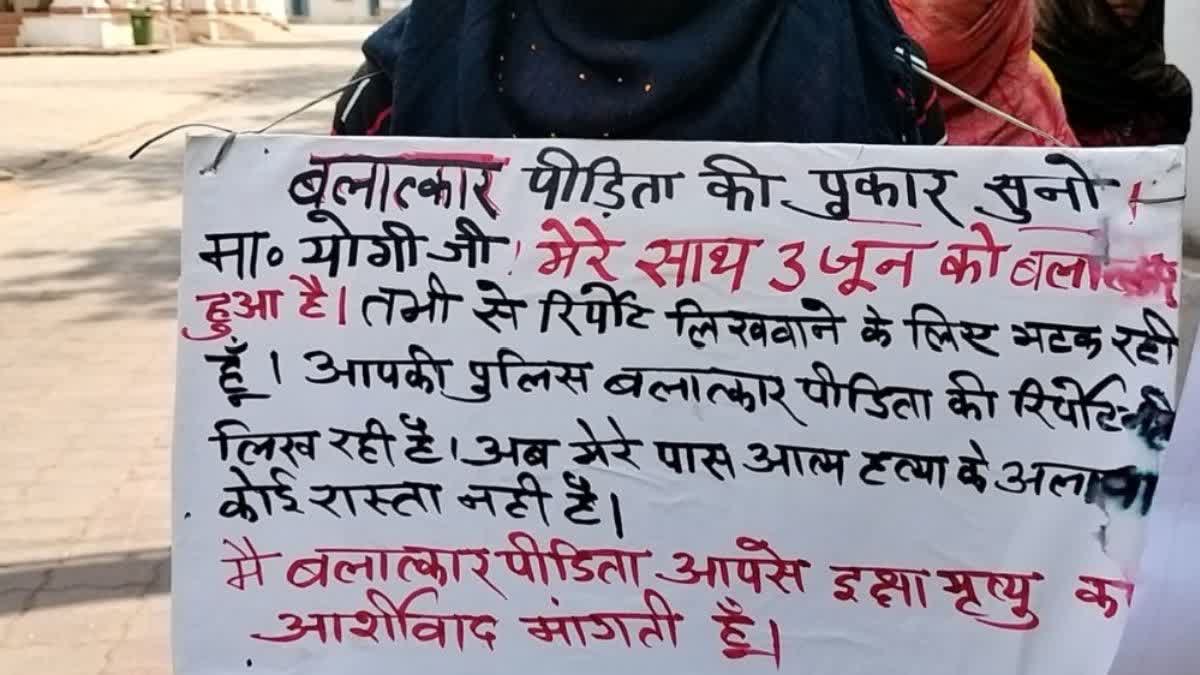 बलात्कार पीड़िता की पुकार सुनो !
मा० योगी जी ! मेरे साथ 3 जून को
हुआ है। तभी से रिर्पोट लिखवाने के लिए भटक रही
हूँ। आपकी पुलिस बलात्कार पीडिता की रिर्पोट
लिख रही है। अब मेरे पास आत्म हत्या के अलावा
कोई रास्ता नही है।
मै बलात्कार पीडिता आपसे इक्षा मृत्यु का
आर्शीवाद मांगती हूँ।